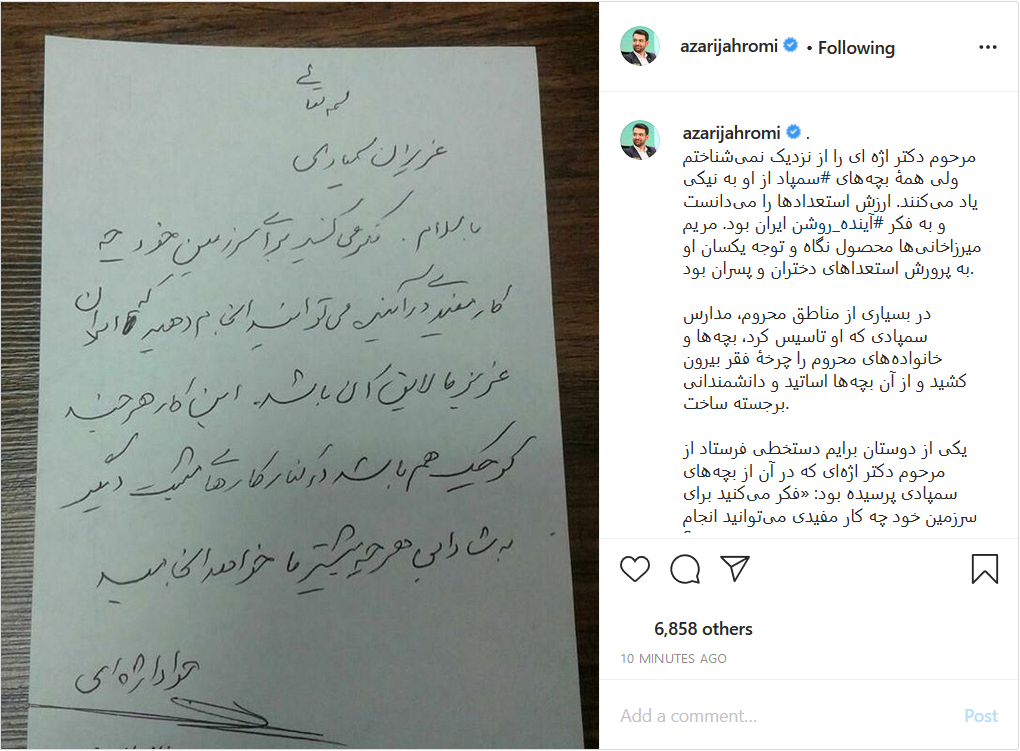 بسمه تعالی
عزیزان سمپادی
با سلام. فکر می‌کنید برای سرزمین خود چه
کار مفیدی در آینده می‌توانید انجام دهید که تا ایران
عزیز ما لایق آن باشد. این کار هر چند
کوچک هم باشد در کنار کارهای مثبت دیگر
به شادابی هر چه بیشتر ما خواهد انجامید
جواد اژه‌ای
azarijahromi • Following
azarijahromi .
مرحوم دکتر اژه ای را از نزدیک نمی‌شناختم
ولی همهٔ بچه‌های #سمپاد از او به نیکی
یاد می‌کنند. ارزش استعدادها را می‌دانست
و به فکر #آینده_روشن ایران بود. مریم
میرزاخانی‌ها محصول نگاه و توجه یکسان او
به پرورش استعداهای دختران و پسران بود.
در بسیاری از مناطق محروم، مدارس
سمپادی که او تاسیس کرد، بچه‌ها و
خانواده‌های محروم را چرخهٔ فقر بیرون
کشید و از آن بچه‌ها اساتید و دانشمندانی
برجسته ساخت.
یکی از دوستان برایم دستخطی فرستاد از
مرحوم دکتر اژه‌ای که در آن از بچه‌های
سمپادی پرسیده بود: «فکر می‌کنید برای
سرزمین خود چه کار مفیدی می‌توانید انجام
6,858 others
10 MINUTES AGO
Add a comment... Post